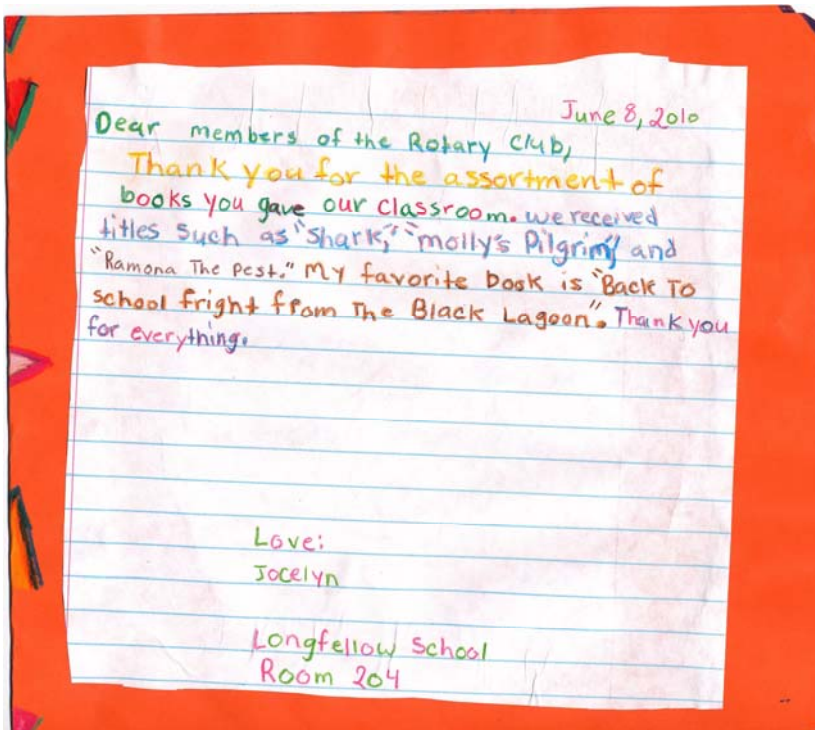 June 8, 2010
Dear members of the Rotary Club,
Thank you for the assortment of
books you gave our classroom. we received
titles such as "Shark," "molly's Pilgrim," and
"Ramona The Pest." My favorite book is "Back To
school fright from The Black Lagoon". Thank you
for everything.
Love:
Jocelyn
Longfellow School
Room 204